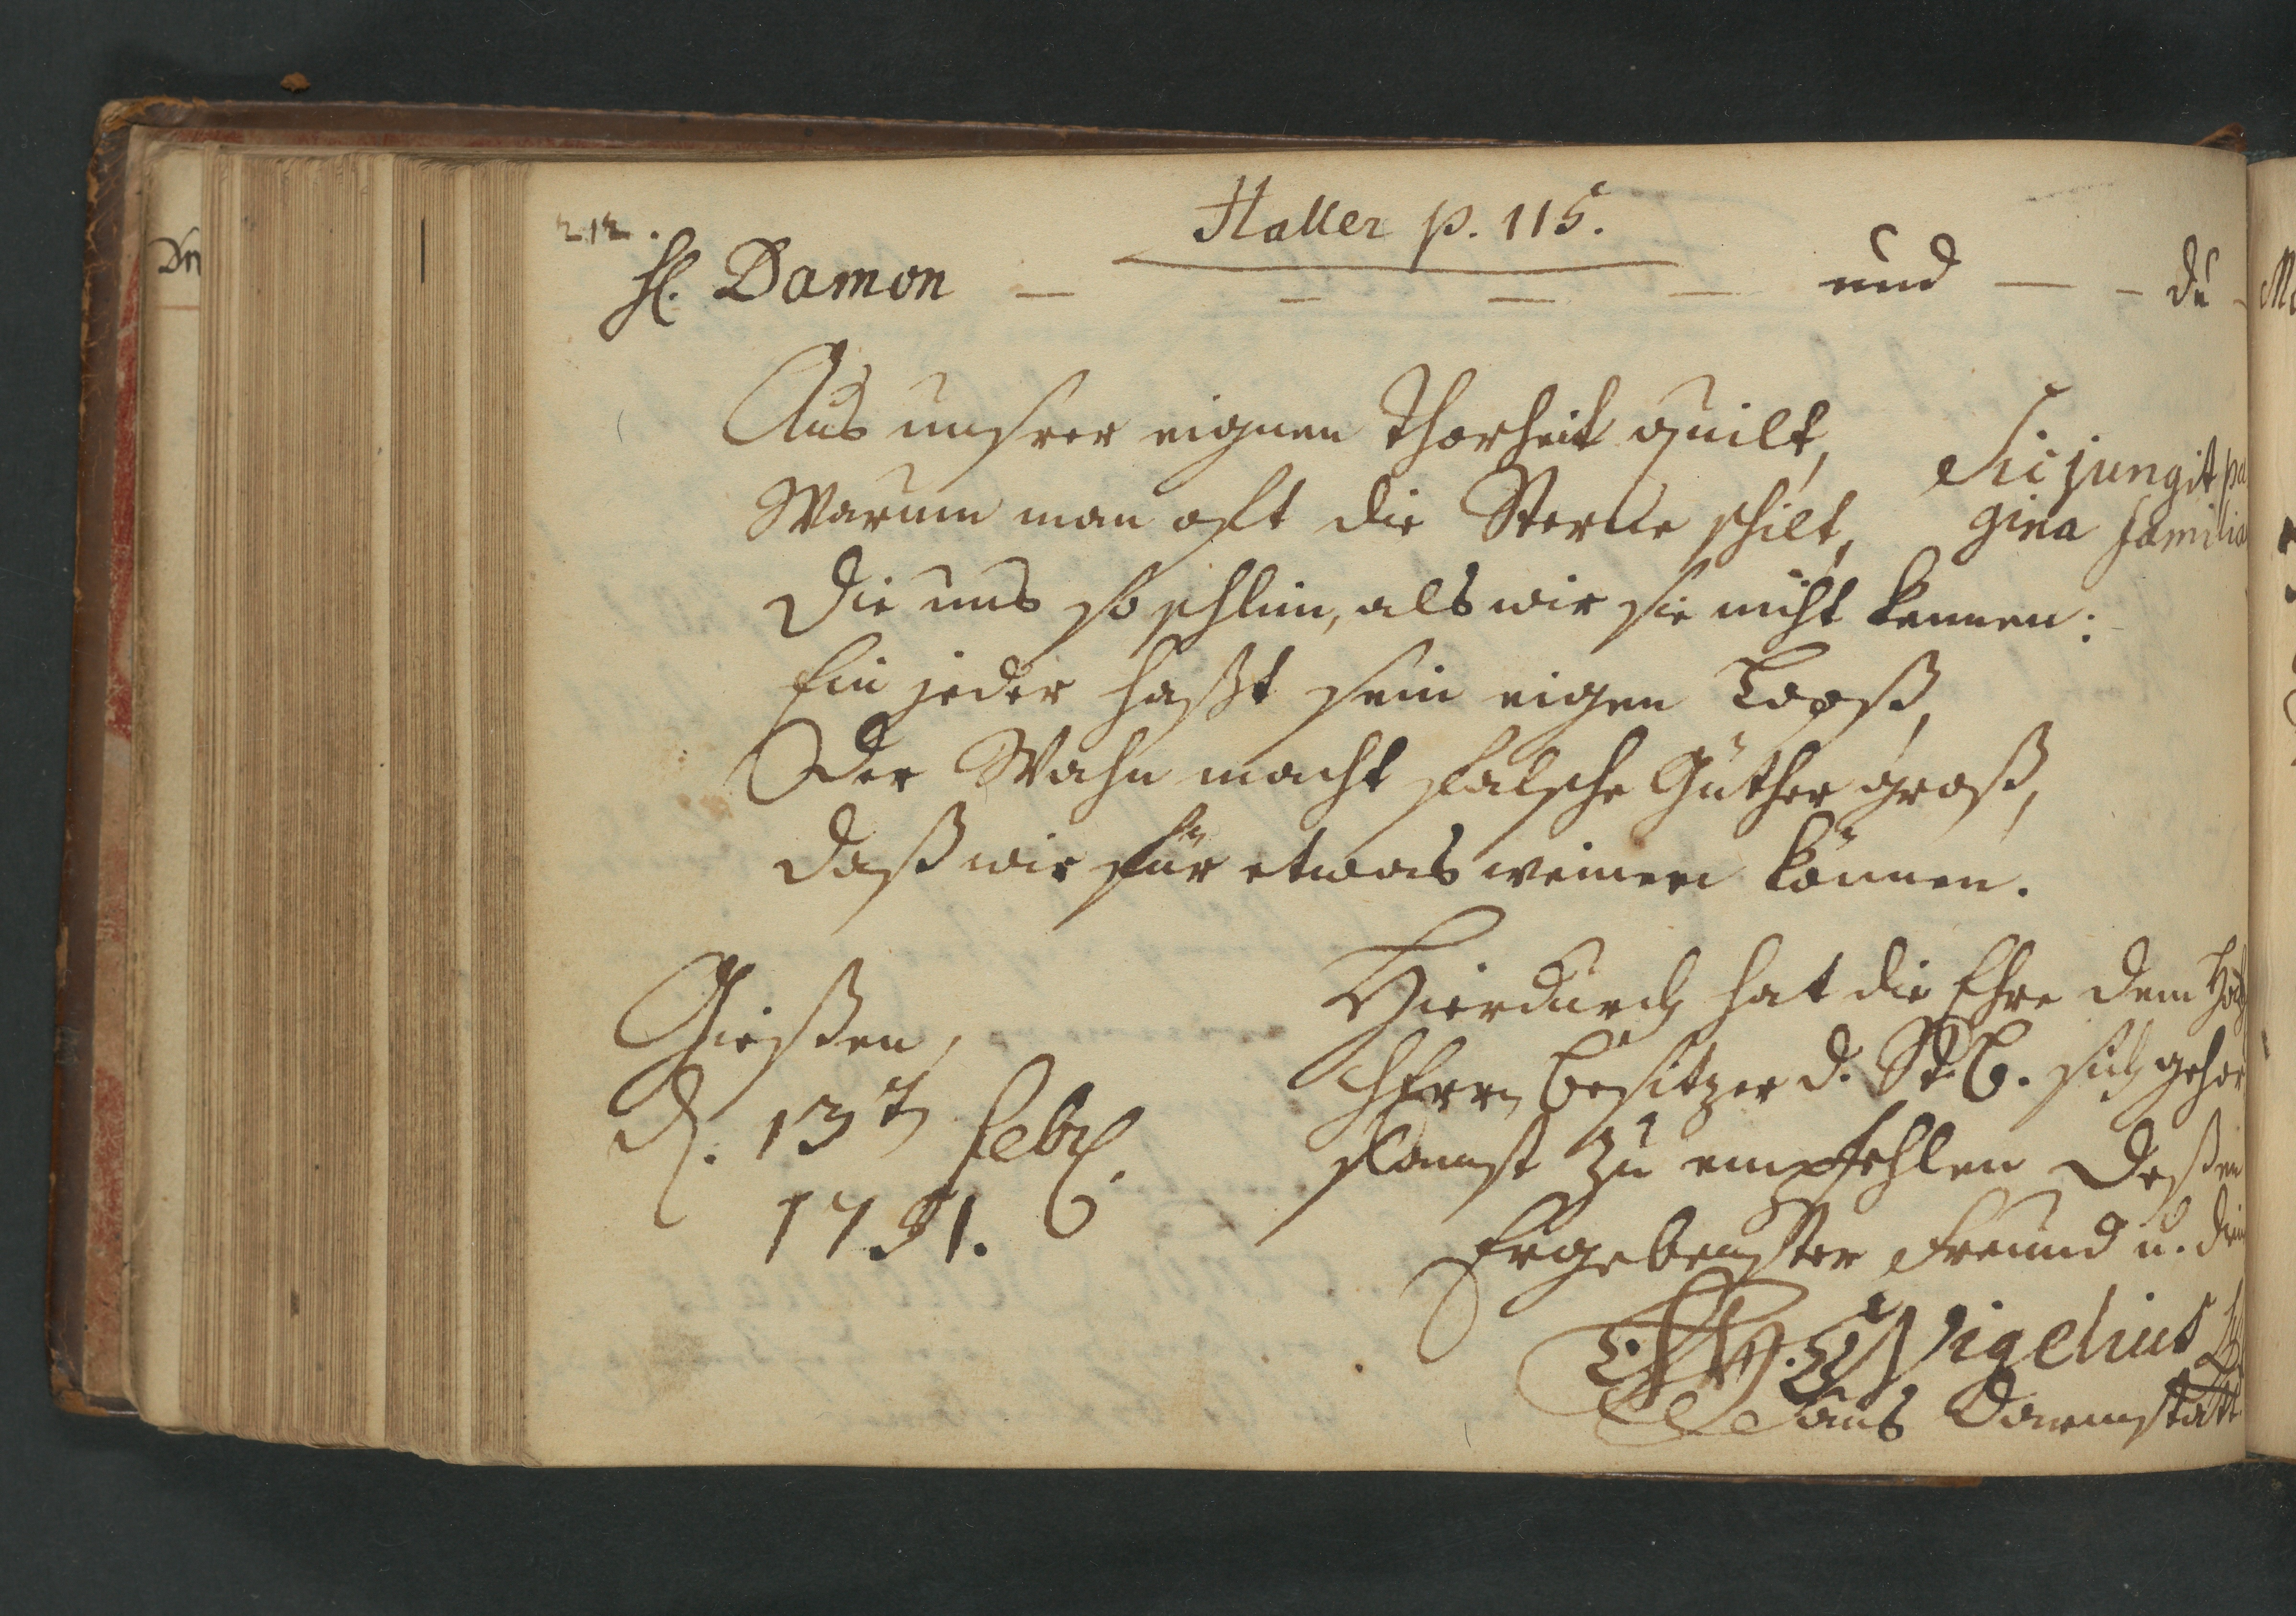 212.
Haller p. 115.
H. Damon — — — — und — - du -
Aus unsrer eignen Thorheit quilt,
Warum man oft die Sterne schilt,
Die uns so schlim, als wir sie nicht kennen:
Ein jeder haßt sein eigen Looß,
Der Wahn macht falsche Güther groß,
Daß wir für etwas weinen können.
Sic jungit pa
gina familia
Gießen,
d. 13t Febr.
1751.
Hierdurch hat die Ehre dem Hoch
HErrn Besitzer d. St. B. sich gehor
samst zu empfehlen deßen
Ergebenster Freund u.
Vigelius
aus Darmstatt